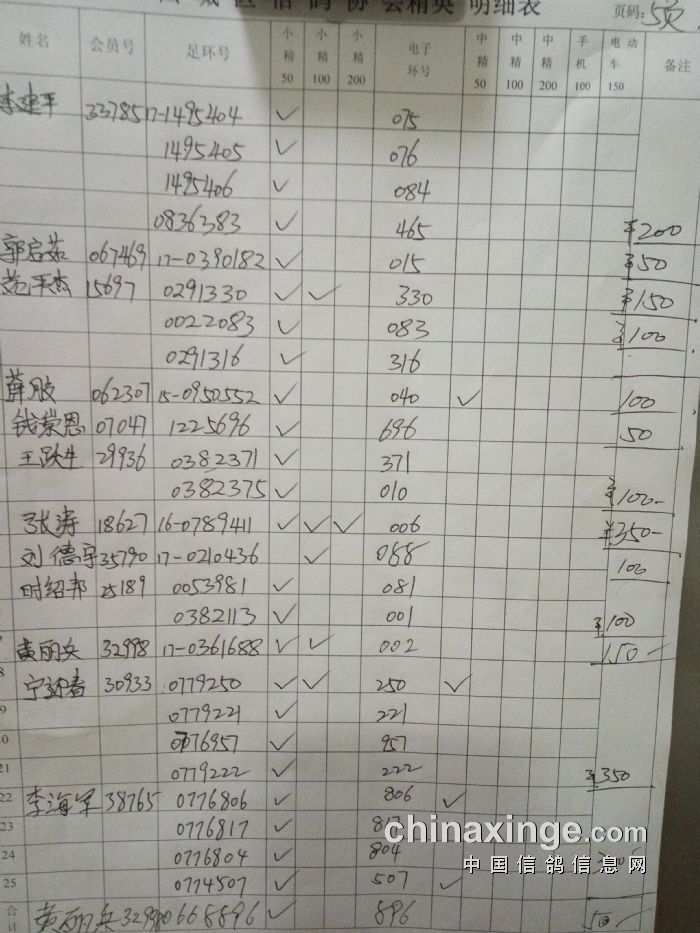 会精英 明细表 页码: 5页
姓名 会员号 足环号 小精50 小精100 小精200 电子环号 中精50 中精100 中精200 手机100 电动车150 备注
李建平 33785 17-1495404 ✓ 075
1495405 ✓ 076
1495406 ✓ 084
0836383 ✓ 465 ¥200
郭启茹 067469 17-0390182 ✓ 015 ¥50
范平杰 15697 0291330 ✓ ✓ 330 ¥150
0022083 ✓ 083 ¥100
0291316 ✓ 316
薛 062307 15-0950552 ✓ 040 ✓ 100
钱崇恩 07047 1225696 ✓ 696 50
王跃生 29936 0382371 ✓ 371
0382375 ✓ 010 ¥100-
张涛 18627 16-0789411 ✓ ✓ ✓ 006 ¥350-
刘德宇 35790 17-0210436 ✓ 088 100
时绍邦 25189 0053981 ✓ 081
0382113 ✓ 001 ¥100
黄丽兵 32998 17-0361688 ✓ ✓ 002 150-
18 宁迎春 30933 0779250 ✓ ✓ 250 ✓
19 0779221 ✓ 221
20 0776957 ✓ 957
21 0779222 ✓ 222 ¥350
22 李海军 38765 0776806 ✓ 806 ✓
23 0776817 ✓ 817
24 0776804 ✓ 804
25 0774507 ✓ 507 ✓
合计 黄丽兵 32998 0668896 ✓ 896 50-
chinaxinge.com
中国信鸽信息网